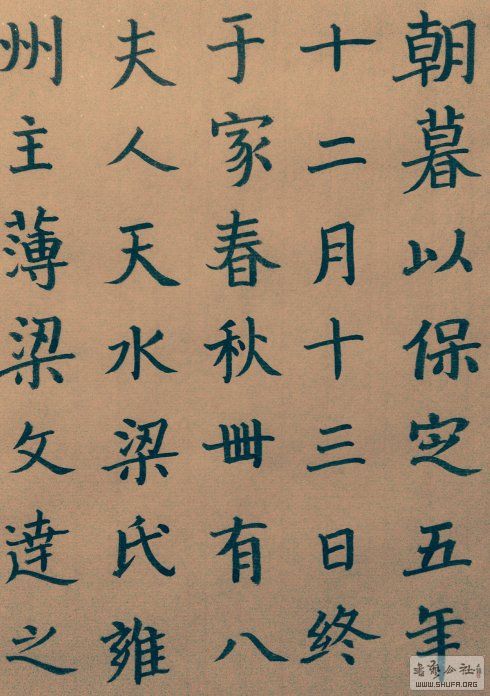 朝暮以保定五年
十二月十三日終
于家春秋卌有八
夫人天水梁氏雍
州主薄梁文達之
WWW.SHUFA.ORG